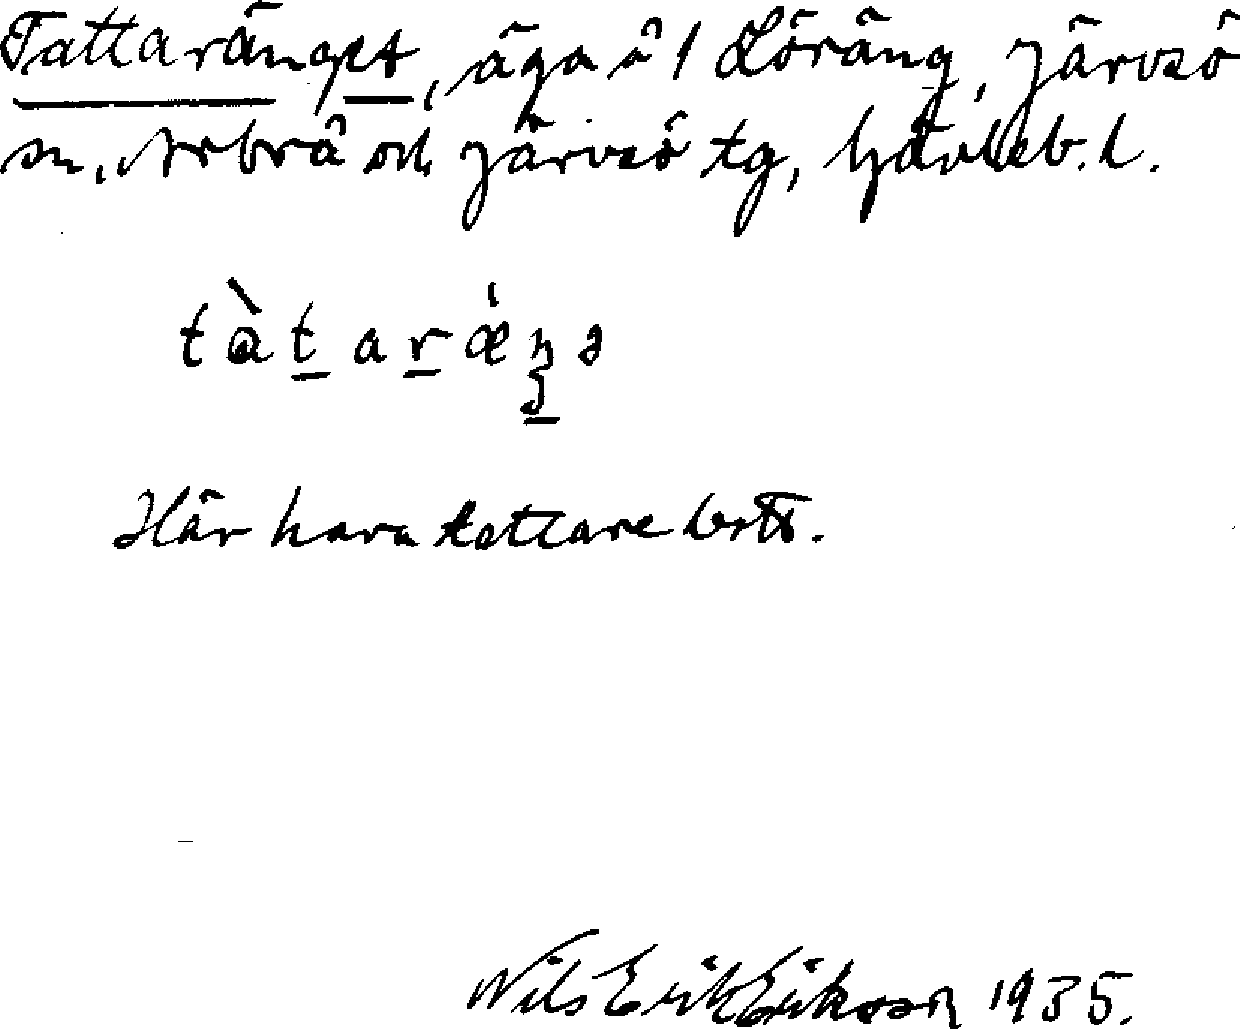 Tattaränget, äga å 1 Löräng, Järvsö
sn, Arbrå och Järvsö tg, Gävleb. l.
tàt̲ar̲ǽŋ̲ə
Här hava tattare bott.
Nils Erik Eriksson 1935.